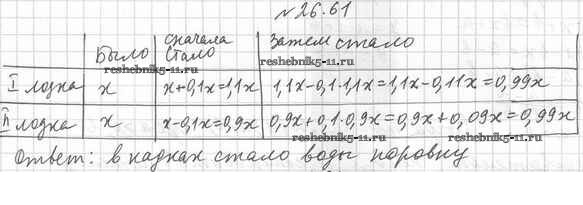 №26.61
Было | сначала стало | Затем стало
reshebnik5-11.ru reshebnik5-11.ru
I лодка | x | x+0,1x=1,1x | 1,1x-0,1·1,1x=1,1x-0,11x=0,99x
II лодка | x | x-0,1x=0,9x | 0,9x+0,1·0,9x=0,9x+0,09x=0,99x
reshebnik5-11.ru reshebnik5-11.ru
Ответ: в кадках стало воды поровну